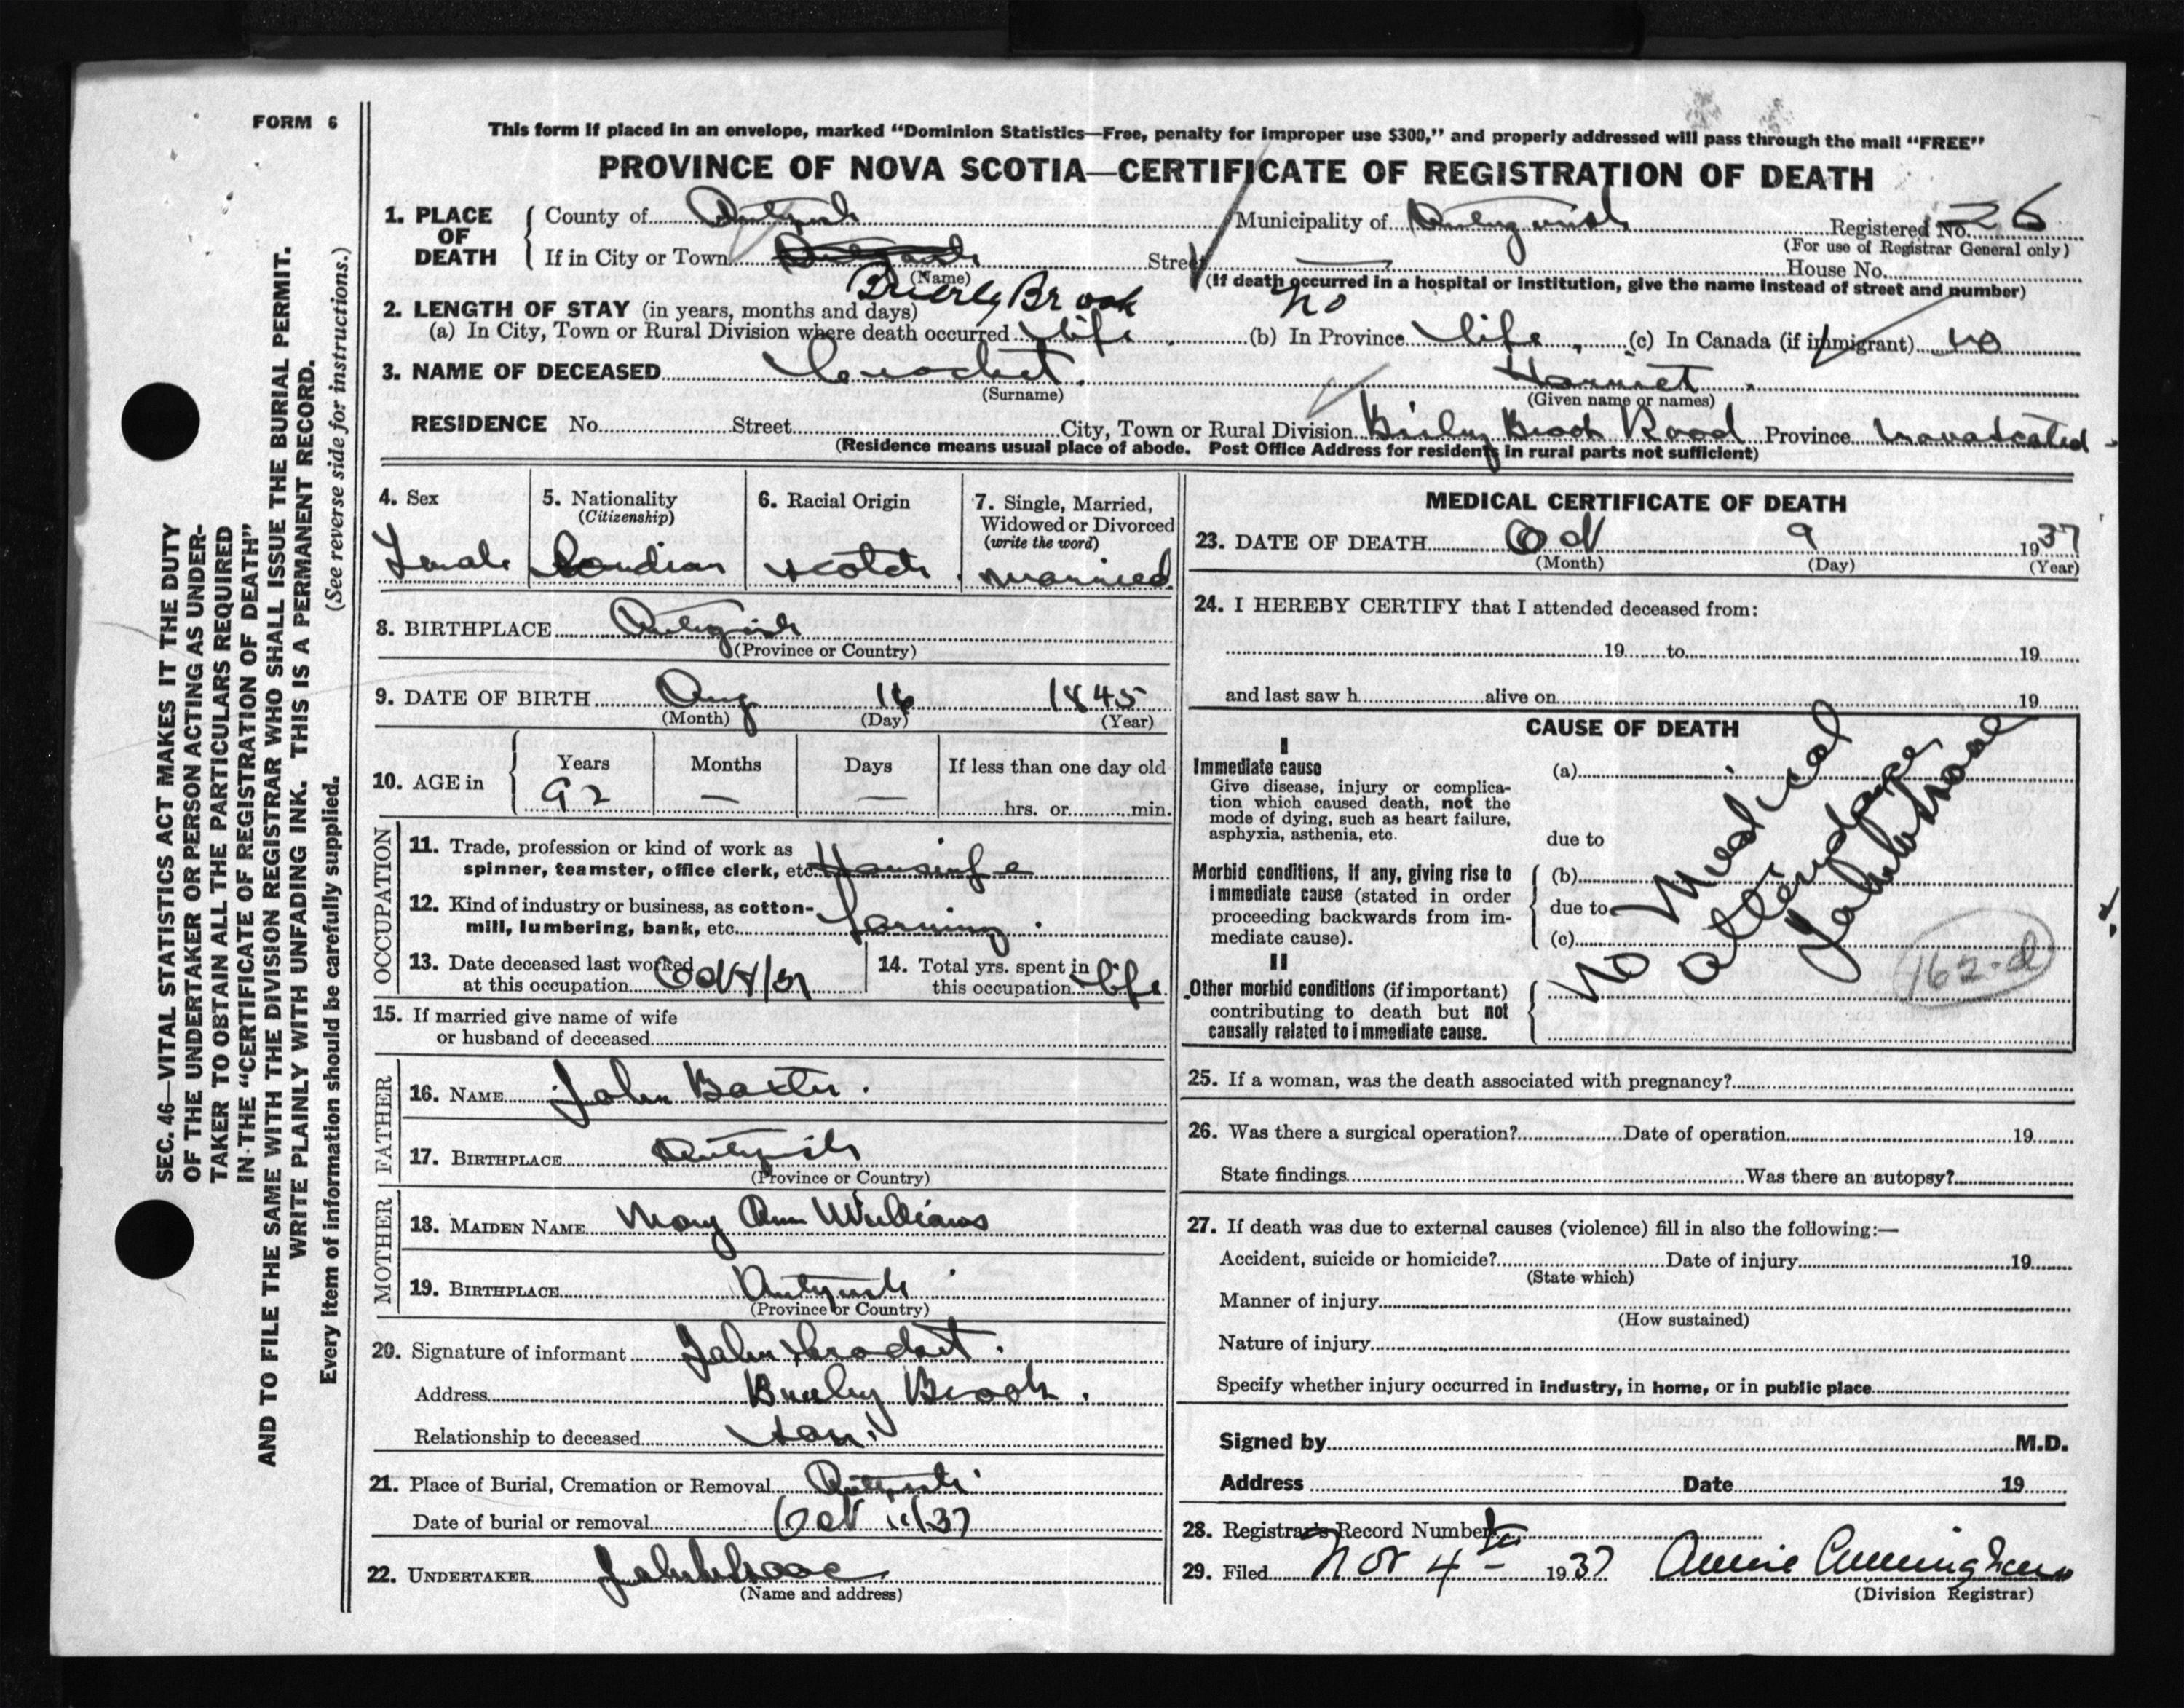 FORM 6
This form if placed in an envelope, marked “Dominion Statistics—Free, penalty for improper use $300,” and properly addressed will pass through the mail “FREE”
PROVINCE OF NOVA SCOTIA—CERTIFICATE OF REGISTRATION OF DEATH
1. PLACE OF DEATH
County of Antigonish Municipality of Antigonish Registered No. 26
(For use of Registrar General only)
If in City or Town Street House No.
(Name)
(If death occurred in a hospital or institution, give the name instead of street and number)
Brierly Brook no
2. LENGTH OF STAY (in years, months and days)
(a) In City, Town or Rural Division where death occurred life (b) In Province life (c) In Canada (if immigrant) no
3. NAME OF DECEASED Crocket Harriet
(Surname) (Given name or names)
RESIDENCE No. Street City, Town or Rural Division Briley Brook Road Province Nova Scotia
(Residence means usual place of abode. Post Office Address for residents in rural parts not sufficient)
4. Sex
Female
5. Nationality
(Citizenship)
Candian
6. Racial Origin
Scotch
7. Single, Married,
Widowed or Divorced
(write the word)
Married
8. BIRTHPLACE Antigonish
(Province or Country)
9. DATE OF BIRTH Aug 16 1845
(Month) (Day) (Year)
10. AGE in
Years Months Days If less than one day old
92 — — hrs. or min.
OCCUPATION
11. Trade, profession or kind of work as
spinner, teamster, office clerk, etc. Housewife
12. Kind of industry or business, as cotton-
mill, lumbering, bank, etc. Farming
13. Date deceased last worked
at this occupation
14. Total yrs. spent in
this occupation life
15. If married give name of wife
or husband of deceased
FATHER
16. NAME John Baxter
17. BIRTHPLACE Antigonish
(Province or Country)
MOTHER
18. MAIDEN NAME Mary Ann Williams
19. BIRTHPLACE Antigonish
(Province or Country)
20. Signature of informant John Crocket
Address Brierly Brook
Relationship to deceased Son
21. Place of Burial, Cremation or Removal Antigonish
Date of burial or removal Oct 11/37
22. UNDERTAKER
(Name and address)
MEDICAL CERTIFICATE OF DEATH
23. DATE OF DEATH Oct 9 1937
(Month) (Day) (Year)
24. I HEREBY CERTIFY that I attended deceased from:
19 to 19
and last saw h alive on 19
CAUSE OF DEATH
I
Immediate cause
Give disease, injury or complica-
tion which caused death, not the
mode of dying, such as heart failure,
asphyxia, asthenia, etc.
(a)
due to
Morbid conditions, if any, giving rise to
immediate cause (stated in order
proceeding backwards from im-
mediate cause).
(b)
due to
(c)
II
Other morbid conditions (if important)
contributing to death but not
causally related to immediate cause.
No Medical
attendance
162-d
25. If a woman, was the death associated with pregnancy?
26. Was there a surgical operation? Date of operation 19
State findings Was there an autopsy?
27. If death was due to external causes (violence) fill in also the following:—
Accident, suicide or homicide? Date of injury 19
(State which)
Manner of injury
(How sustained)
Nature of injury
Specify whether injury occurred in industry, in home, or in public place
Signed by M.D.
Address Date 19
28. Registrar's Record Number
29. Filed Nov 4th 1937 Annie Cunningham
(Division Registrar)
SEC. 46—VITAL STATISTICS ACT MAKES IT THE DUTY
OF THE UNDERTAKER OR PERSON ACTING AS UNDER-
TAKER TO OBTAIN ALL THE PARTICULARS REQUIRED
IN THE “CERTIFICATE OF REGISTRATION OF DEATH”
AND TO FILE THE SAME WITH THE DIVISION REGISTRAR WHO SHALL ISSUE THE BURIAL PERMIT.
WRITE PLAINLY WITH UNFADING INK. THIS IS A PERMANENT RECORD.
Every item of information should be carefully supplied. (See reverse side for instructions.)